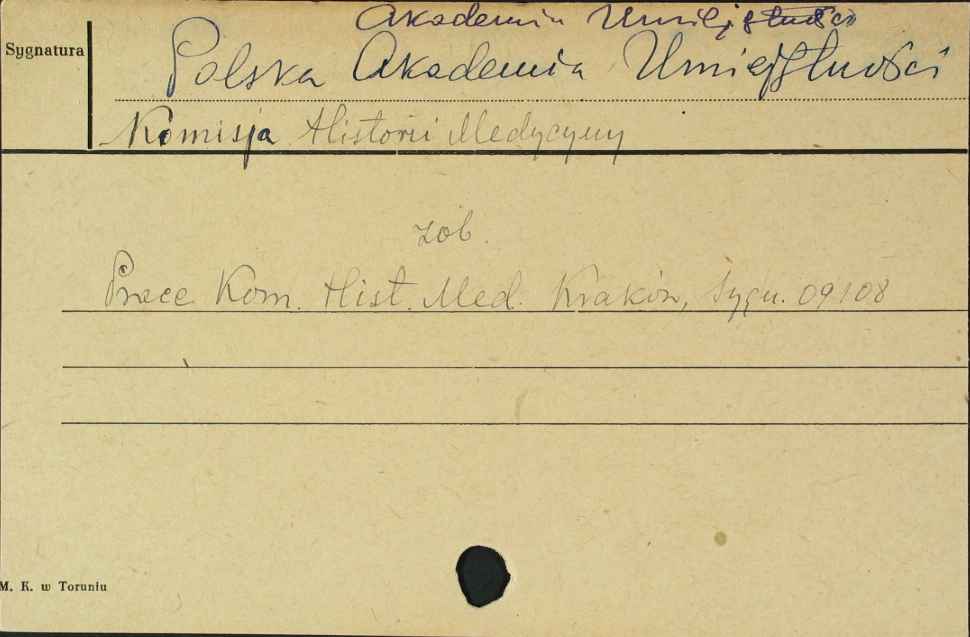 Akademia Umiejętności
Sygnatura
Polska Akademia Umiejętności
Komisja Historii Medycyny
zob.
Prace Kom. Hist. Med. Kraków, Sygn. 09108
M. K. w Toruniu